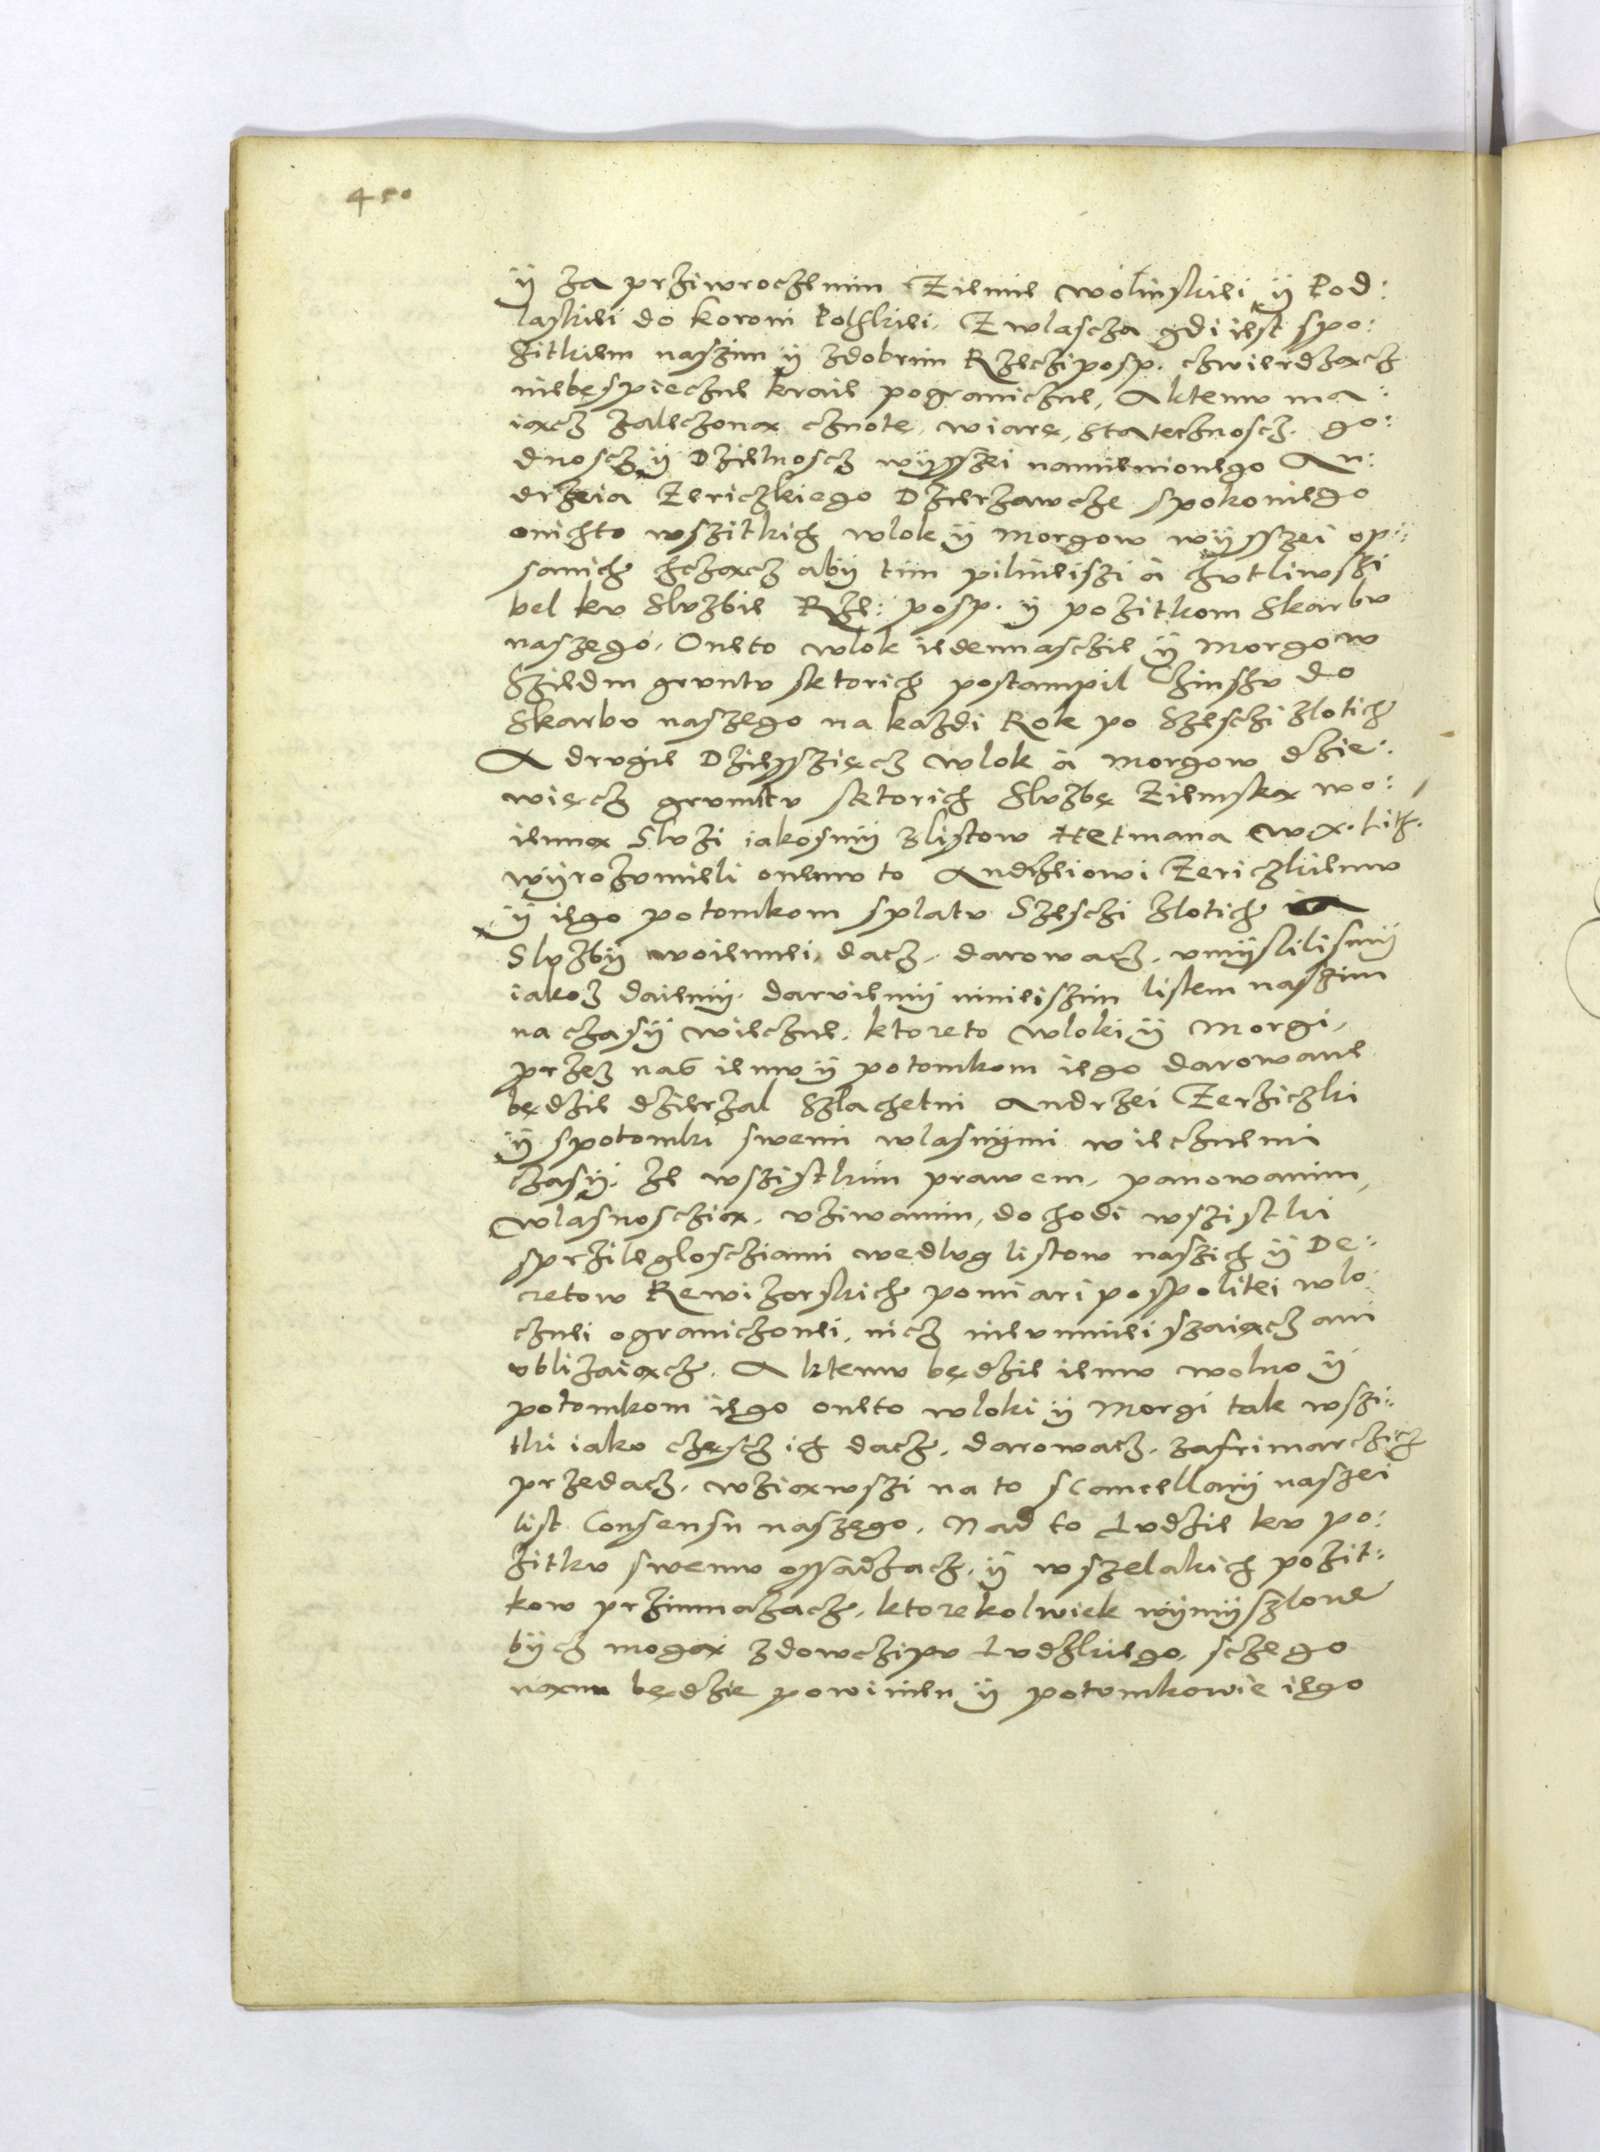 450
ÿ za przÿwroczenim Ziemie wolinskiei ÿ Pod:
laskiei do koroni Polskiei. Zwlascza gdi iest spo:
zitkiem naszim ÿ zdobrim Rzecziposp. czwierdzącz
niebespieczne kraie pograniczne, Aktemu ma:
iącz zaleczoną cznotę, wiarę, statecznoscz. go:
dnoscz ÿ Dzielnoscz wÿsszei namienionego An:
drzeia Zericzkiego Dzierzawcze spokoinego
onichto wszitkich wlok ÿ morgow wÿsszei op:
sanich chczącz abÿ tim pilnieiszi à chutliwszi
bel ku sluzbie Rze: posp. ÿ pozitkom skarbu
naszego. Oneto wlok iedennasczie ÿ morgow
Sziedm gruntu sktorich postampil Czinszu do
Skarbu naszego na kazdi Rok po Szesczi zlotich
A drugie Dziesszięcz wlok à morgow dzie:
więcz gruntu sktorich sluzbę Ziemską wo:
ienną sluzi iakosmÿ zlistow Hetmana W. X. Lith.
wÿrozumieli onemu to Andrzeiowi Zericzkiemu
ÿ iego potomkom splatu Szesczi zlotich
Sluzbÿ woiennei, dacz, darowacz, umÿslilismÿ
iakoz daiemÿ. daruiemÿ ninieiszim listem naszim
na czasÿ wieczne. ktoreto wloki ÿ Morgi,
przez nas iemu ÿ potomkom iego darowane
będzie dzierzal Szlachetni Andrzei Zerziczki
ÿ spotomki swemi wlasnÿmi wiecznemi
czasÿ. Ze wszistkim prawem, panowanim,
wlasnosczią, uziwanim, dochodi wszistki
sprzileglosczami wedlug listow naszich ÿ De:
cretow Rewizorskich pomiari pospolitei wlo
cznei ograniczonei, nicz nieumnieiszaiącz ani
ublizaiącz. Aktemu będzie iemu wolno ÿ
potomkom iego oneto wloki ÿ Morgi tak wszi:
tki iako częscz ich dacz, darowacz, zafrimarczicz
przedacz, wziąwszi na to sCancellariÿ naszei
list Consensu naszego. Nad to Ludzie ku po:
zitku swemu ossadzacz, ÿ wszelakich pozit:
kow przimnazacz, ktorekolwiek wÿmÿszlone
bÿcz mogą zdowczipu Ludzkiego, sczego
nam będzie powinien ÿ potomkowie iego